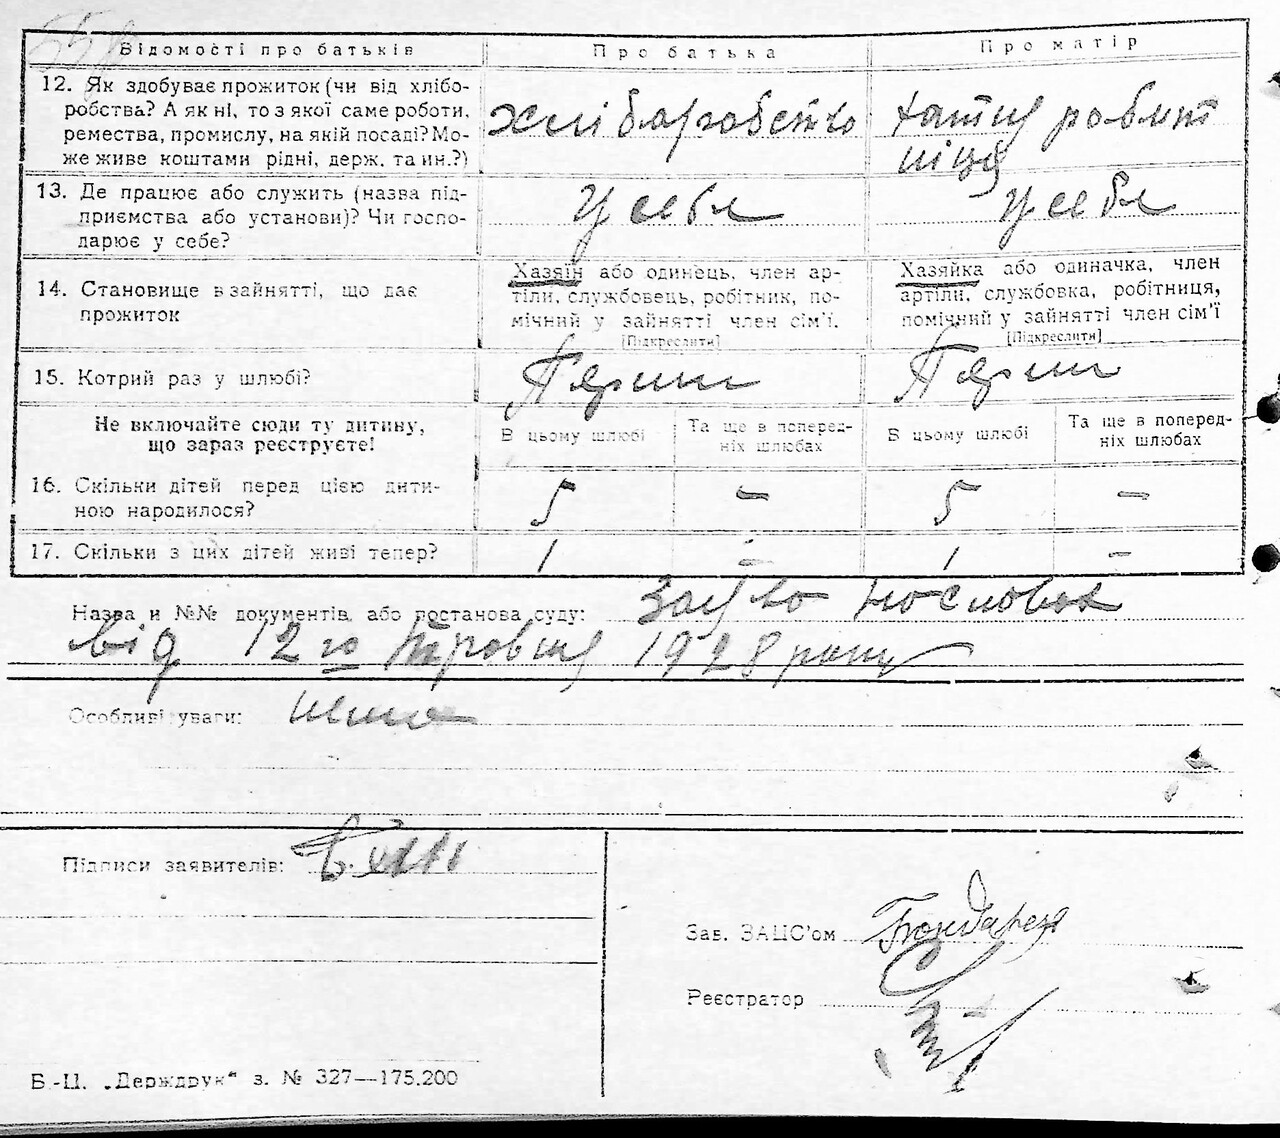 Відомості про батьків
Про батька
Про матір
12. Як здобуває прожиток (чи від хлібо-
робства? А як ні, то з якої саме роботи,
ремества, промислу, на якій посаді? Мо-
же живе коштами рідні, держ. та ин.?)
хліборобство
хатня робит
ніця
13. Де працює або служить (назва під-
приємства або установи)? Чи госпо-
дарює у себе?
У себя
У себя
14. Становище в зайнятті, що дає
прожиток
Хазяїн або одинець, член ар-
тіли, службовець, робітник, по-
мічний у зайнятті член сім’ї.
[Підкреслити]
Хазяйка або одиначка, член
артіли, службовка, робітниця,
помічний у зайнятті член сім’ї
[Підкреслити]
15. Котрий раз у шлюбі?
Перший
Перший
Не включайте сюди ту дитину,
що зараз реєструєте!
В цьому шлюбі
Та ще в поперед-
ніх шлюбах
В цьому шлюбі
Та ще в поперед-
ніх шлюбах
16. Скільки дітей перед цією дити-
ною народилося?
5
–
5
–
17. Скільки з цих дітей живі тепер?
1
–
1
–
Назва и №№ документів, або постанова суду:
від 12го Травня 1928 року
Особливі уваги:
Підписи заявителів:
Зав. ЗАЦС’ом Бондарец
Реєстратор
Б.-Ц. „Держдрук“ з. № 327—175.200